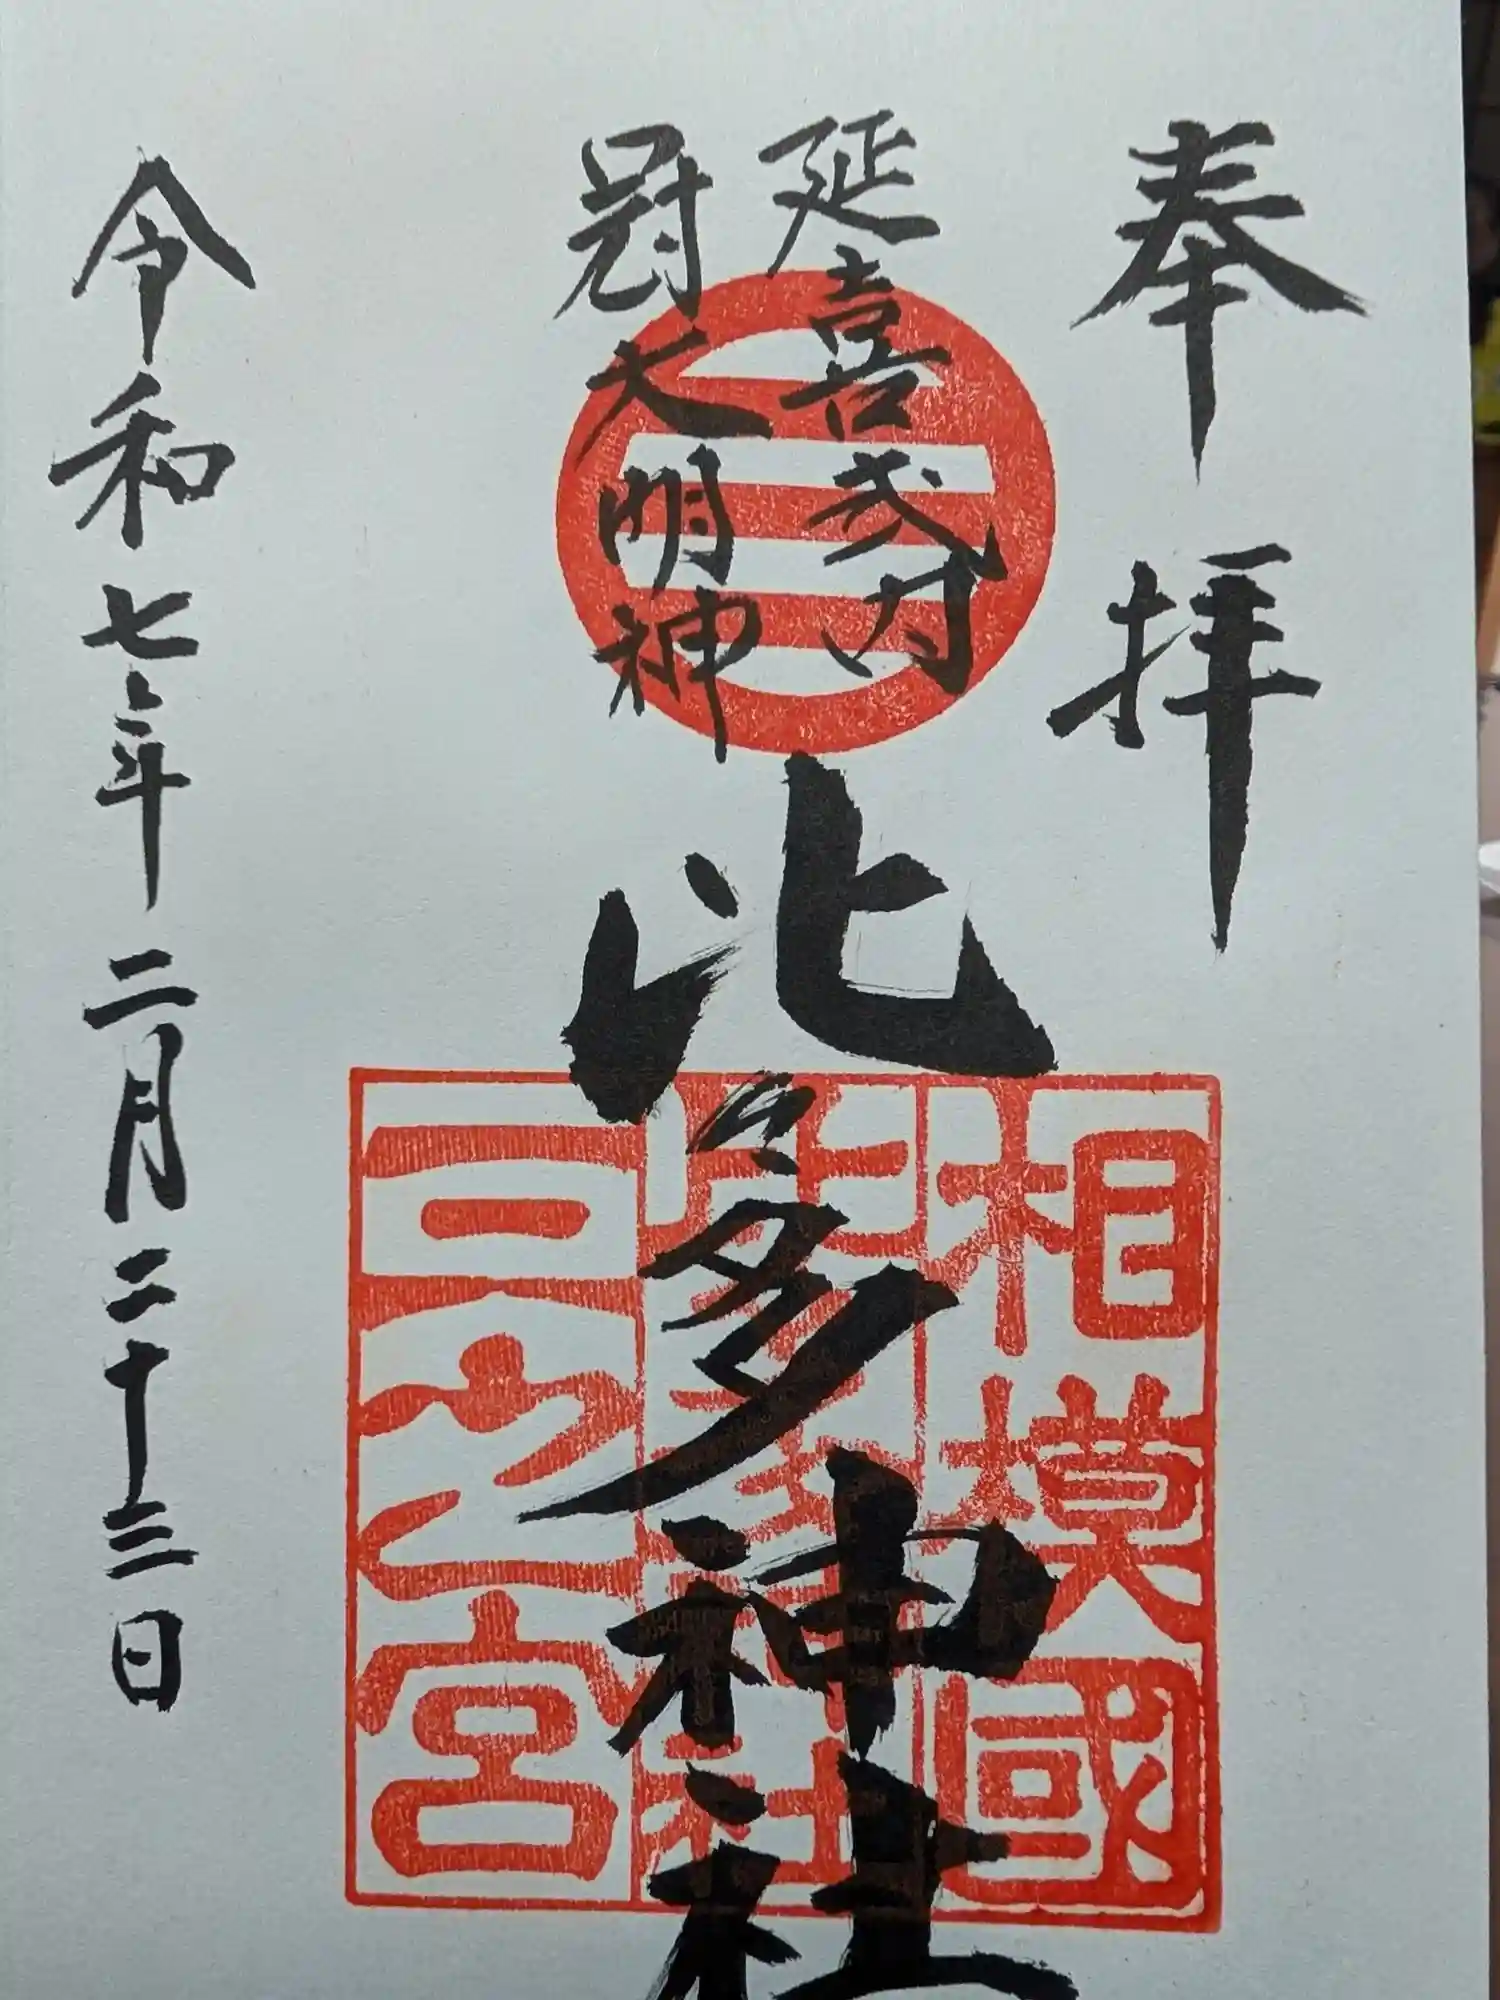 奉拝
延喜式内
冠大明神
比々多神社
令和七年二月二十三日
相模國
三之宮